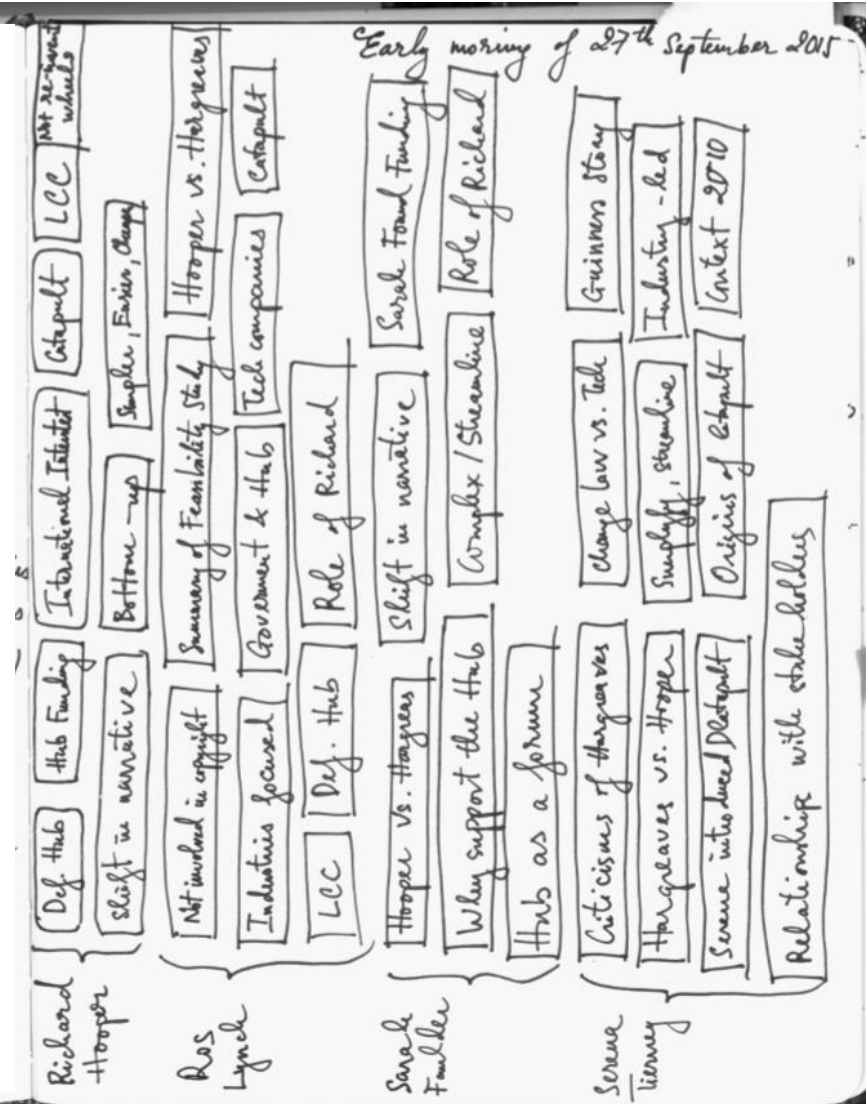 Early moring of 27th September 2015
Richard
Hooper
Def. Hub
Hub Funding
International Intertet
Catapult
LCC
Not re-invent
wheels
Shift in narrative
Bottom-up
Simpler, Easier,
Ros
Lynch
Not involved in copyright
Summary of Feasibility Study
Hooper vs. Hargreaves
Industries focused
Goverment & Hub
Tech companies
Catapult
LCC
Def. Hub
Role of Richard
Sarah
Faulder
Hooper vs. Hargreas
Shift in narrative
Sarah Found Funding
Why support the Hub
Complex / Streamline
Role of Richard
Hub as a forum
Serena
Tierney
Criticisms of Hargreaves
Change law vs. Tech
Guinness Story
Hargreaves vs. Hooper
Simplify, Streamline
Industry-led
Serene introduced DCatapult
Origins of Catapult
Context 2010
Relationship with stake holders